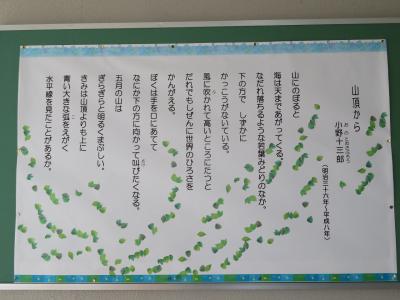 山頂から
小野十三郎
おのとおざぶろう
(明治三十六年~平成八年)
山にのぼると
海は天まであがってくる。
なだれ落ちるような若葉みどりのなか。
下の方で しずかに
かっこうがないている。
風に吹かれて高いところにたつと
だれでもしぜんに世界のひろさを
かんがえる。
ぼくは手を口にあてて
なにか下の方に向かって叫びたくなる。
五月の山は
ぎらぎらと明るくまぶしい。
きみは山頂よりも上に
青い大きな弧をえがく
水平線を見たことがあるか。